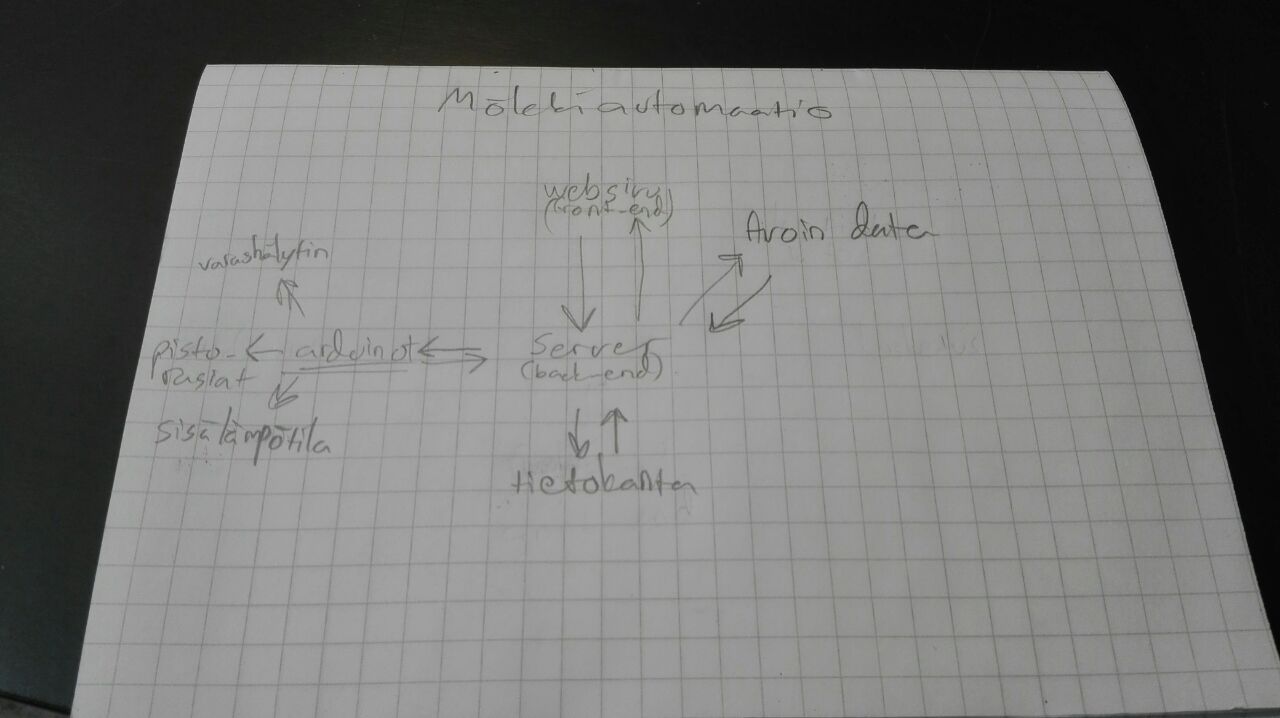 Mökki automaatio
websivu
(front-end)
Avoin data
varashälytin
pisto-
rasiat
arduinot
Server
(back-end)
sisälämpötila
tietokanta